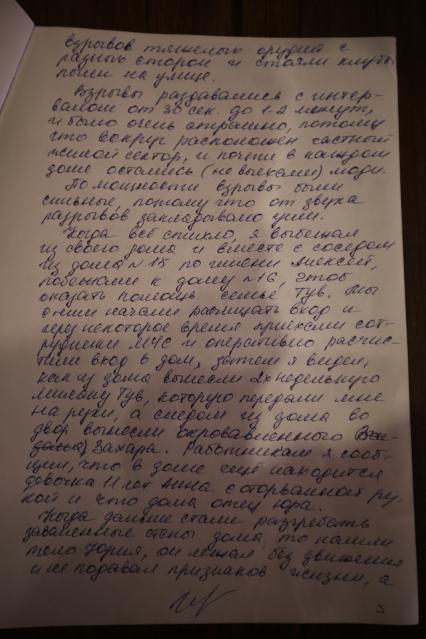 взрывов тяжелого орудия с
разных сторон и стояли клубы
пыли на улице.
Взрывы раздавались с интер-
валом от 30 сек. до 1-2 минут,
и было очень страшно, потому
что вокруг расположен частный
жилой сектор, и почти в каждом
доме остались (не выехали) люди.
По мощности взрывы были
сильные, потому что от звука
разрывов закладывало уши.
Когда всё стихло, я выбежал
из своего дома и вместе с соседом
из дома №15 по имени Алексей,
побежали к дому №16, чтоб
оказать помощь семье Тув. Мы
с ним начали расчищать вход и
через некоторое время приехали сот-
рудники МЧС и оперативно расчис-
тили вход в дом, затем я видел,
как из дома вынесли 2х недельную
Милану Тув, которую передали мне
на руки, а следом из дома во
двор вынесли окровавленного
Захара. Работникам я сооб-
щил, что в доме ещё находится
девочка 11 лет Анна с оторванной ру-
кой и что дома отец Юра.
Когда дальше стали разгребать
заваленные стены дома то нашли
тело Юрия, он лежал без движения
и не подавал признаков жизни, а
3